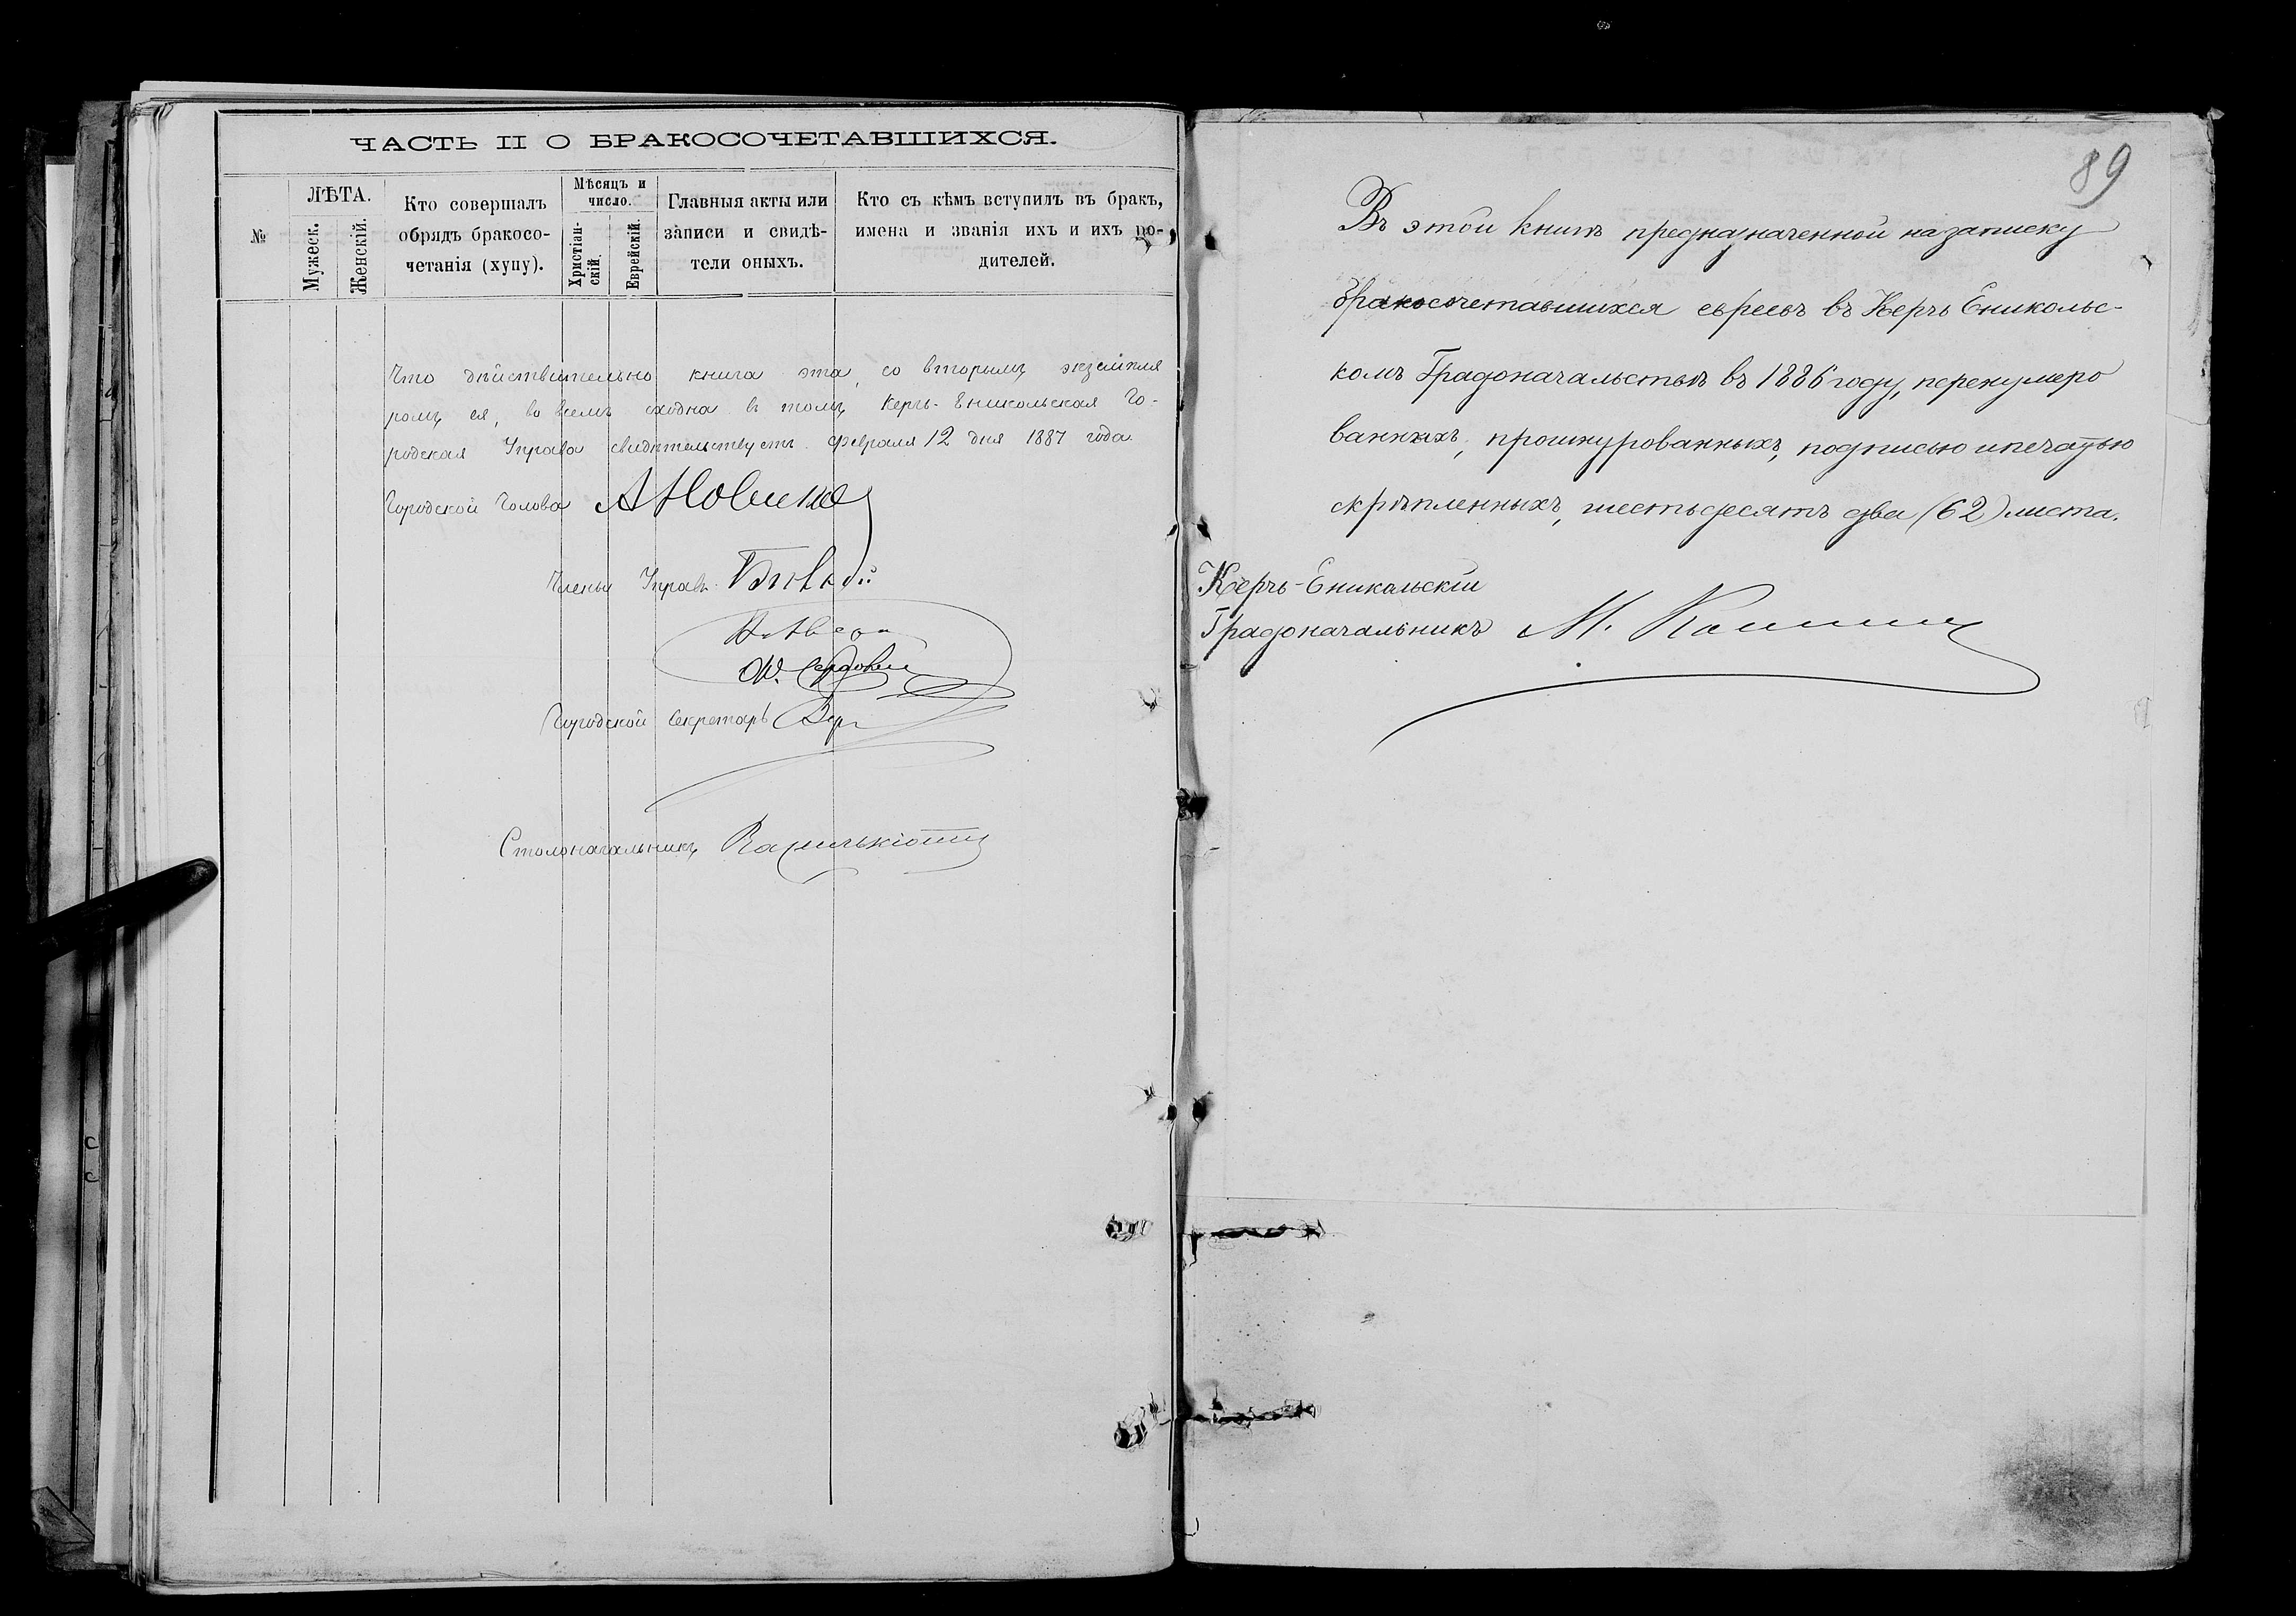 ЧАСТЬ II О БРАКОСОЧЕТАВШИХСЯ.
№
ЛѢТА.
Мужеск.
Женскій.
Кто совершалъ
обрядъ бракосо-
четанія (хупу).
Мѣсяцъ и
число.
Христіан-
скій.
Еврейскій.
Главныя акты или
записи и свидѣ-
тели оныхъ.
Кто съ кѣмъ вступилъ въ бракъ,
имена и званія ихъ и ихъ ро-
дителей.
Что дѣйствительно книга эта, со вторымъ экземпля
ромъ ея, во всемъ сходна въ томъ Керчь-Еникольская Го-
родская Управа свидѣтельствуетъ. Февраля 12 дня 1887 года.
Городской Голова А Новиковъ
Члены Управы
Городской Секретарь
Столоначальникъ
89
Въ этой книгѣ предназначенной на записку
бракосочетавшихся евреевъ въ Керчь Еникольс-
комъ Градоначальствѣ въ 1886 году, перенумеро
ванныхъ, прошнурованныхъ, подписью и печатью
скрѣпленныхъ, шестьдесятъ два (62) листа.
Керчь-Еникальскій
Градоначальникъ М.